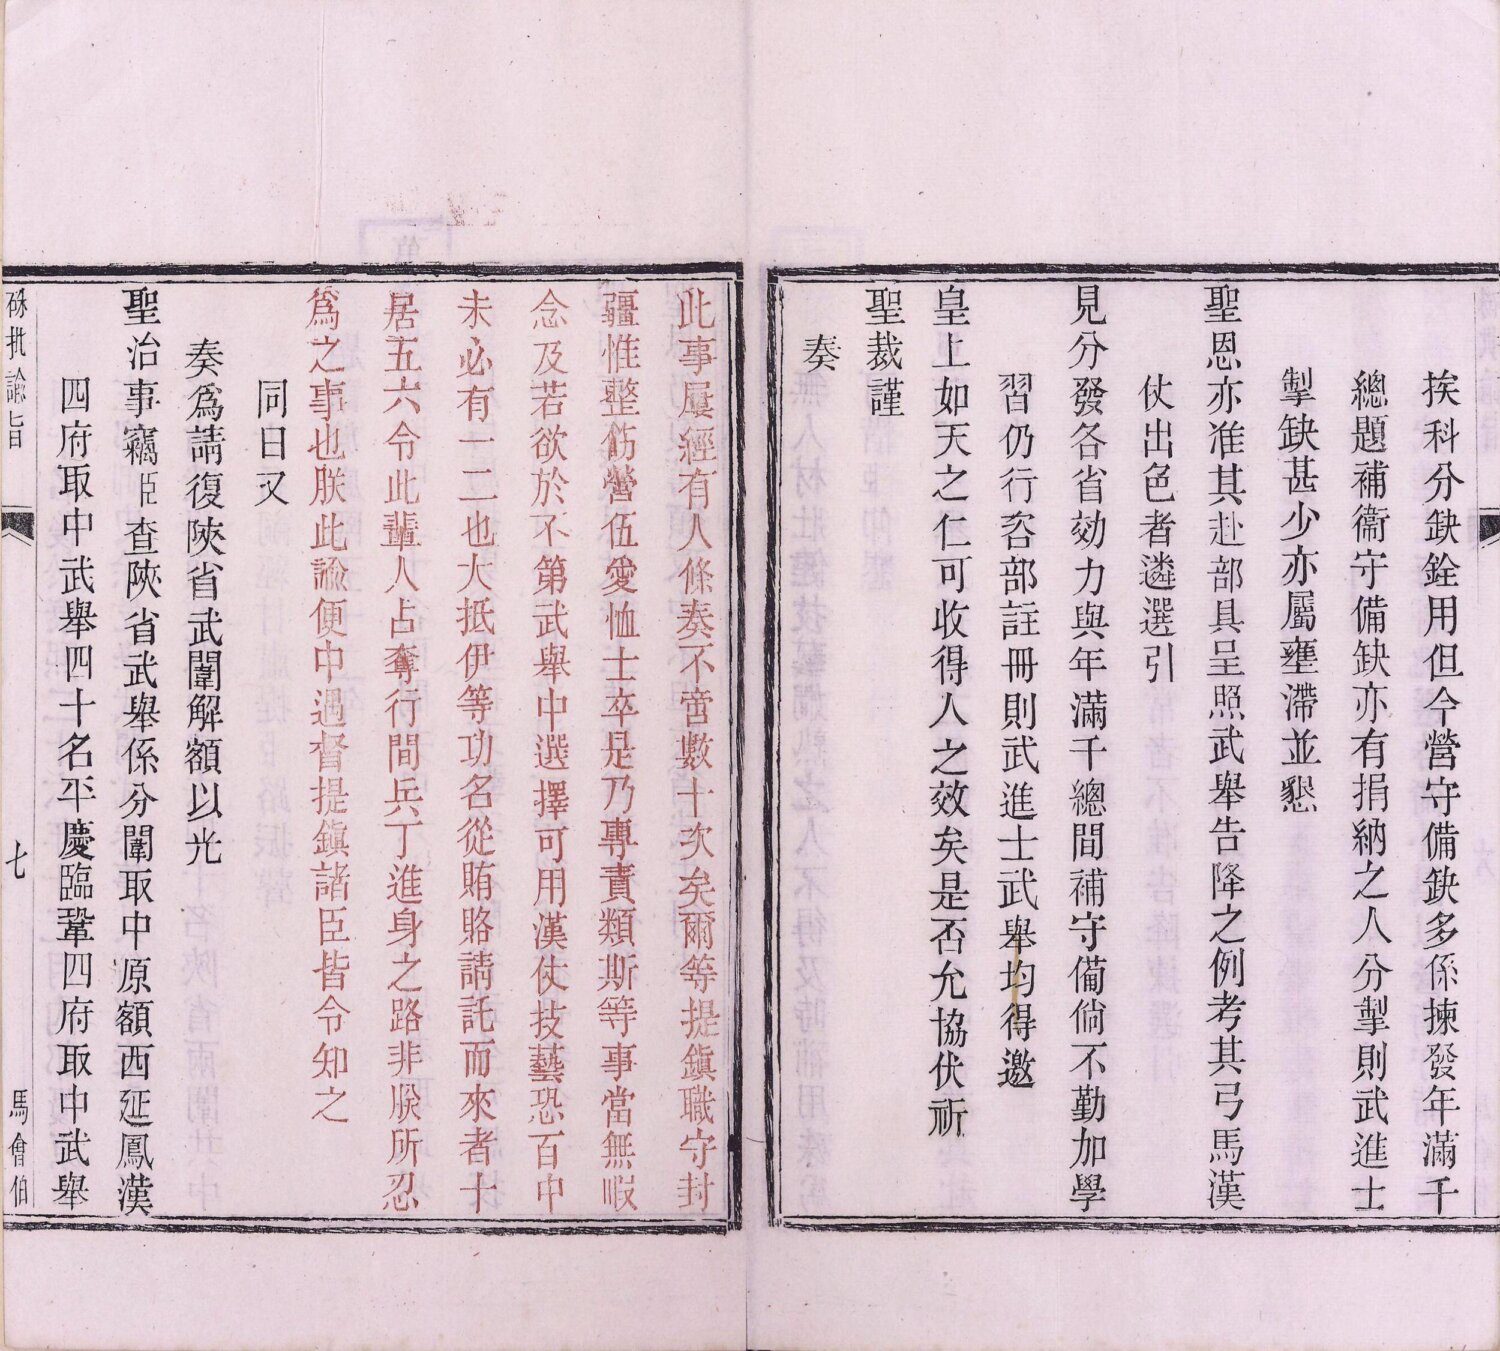 挨科分鈌銓用但今營守備鈌多係揀發年滿千
總題補衞守備鈌亦有捐納之人分掣則武進士
掣鈌甚少亦屬壅滯並懇
聖恩亦准其赴部具呈照武舉告降之例考其弓馬漢
仗出色者遴選引
見分發各省効力與年滿千總間補守備倘不勤加學
習仍行咨部註冊則武進士武舉均得邀
皇上如天之仁可收得人之效矣是否允協伏祈
聖裁謹
奏
此事屢經有人條奏不啻數十次矣爾等提鎭職守封
疆惟整飭營伍愛恤士卒是乃專責類斯等事當無暇
念及若欲於不第武舉中選擇可用漢仗技藝恐百中
未必有一二也大抵伊等功名從賄賂請託而來者十
居五六令此輩人占奪行間兵丁進身之路非朕所忍
爲之事也朕此諭便中遇督提鎭諸臣皆令知之
同日又
奏爲請復陝省武闈解額以光
聖治事竊臣查陝省武舉係分闈取中原額西延鳳漢
四府取中武舉四十名平慶臨鞏四府取中武舉
硃批諭旨
七
馬會伯